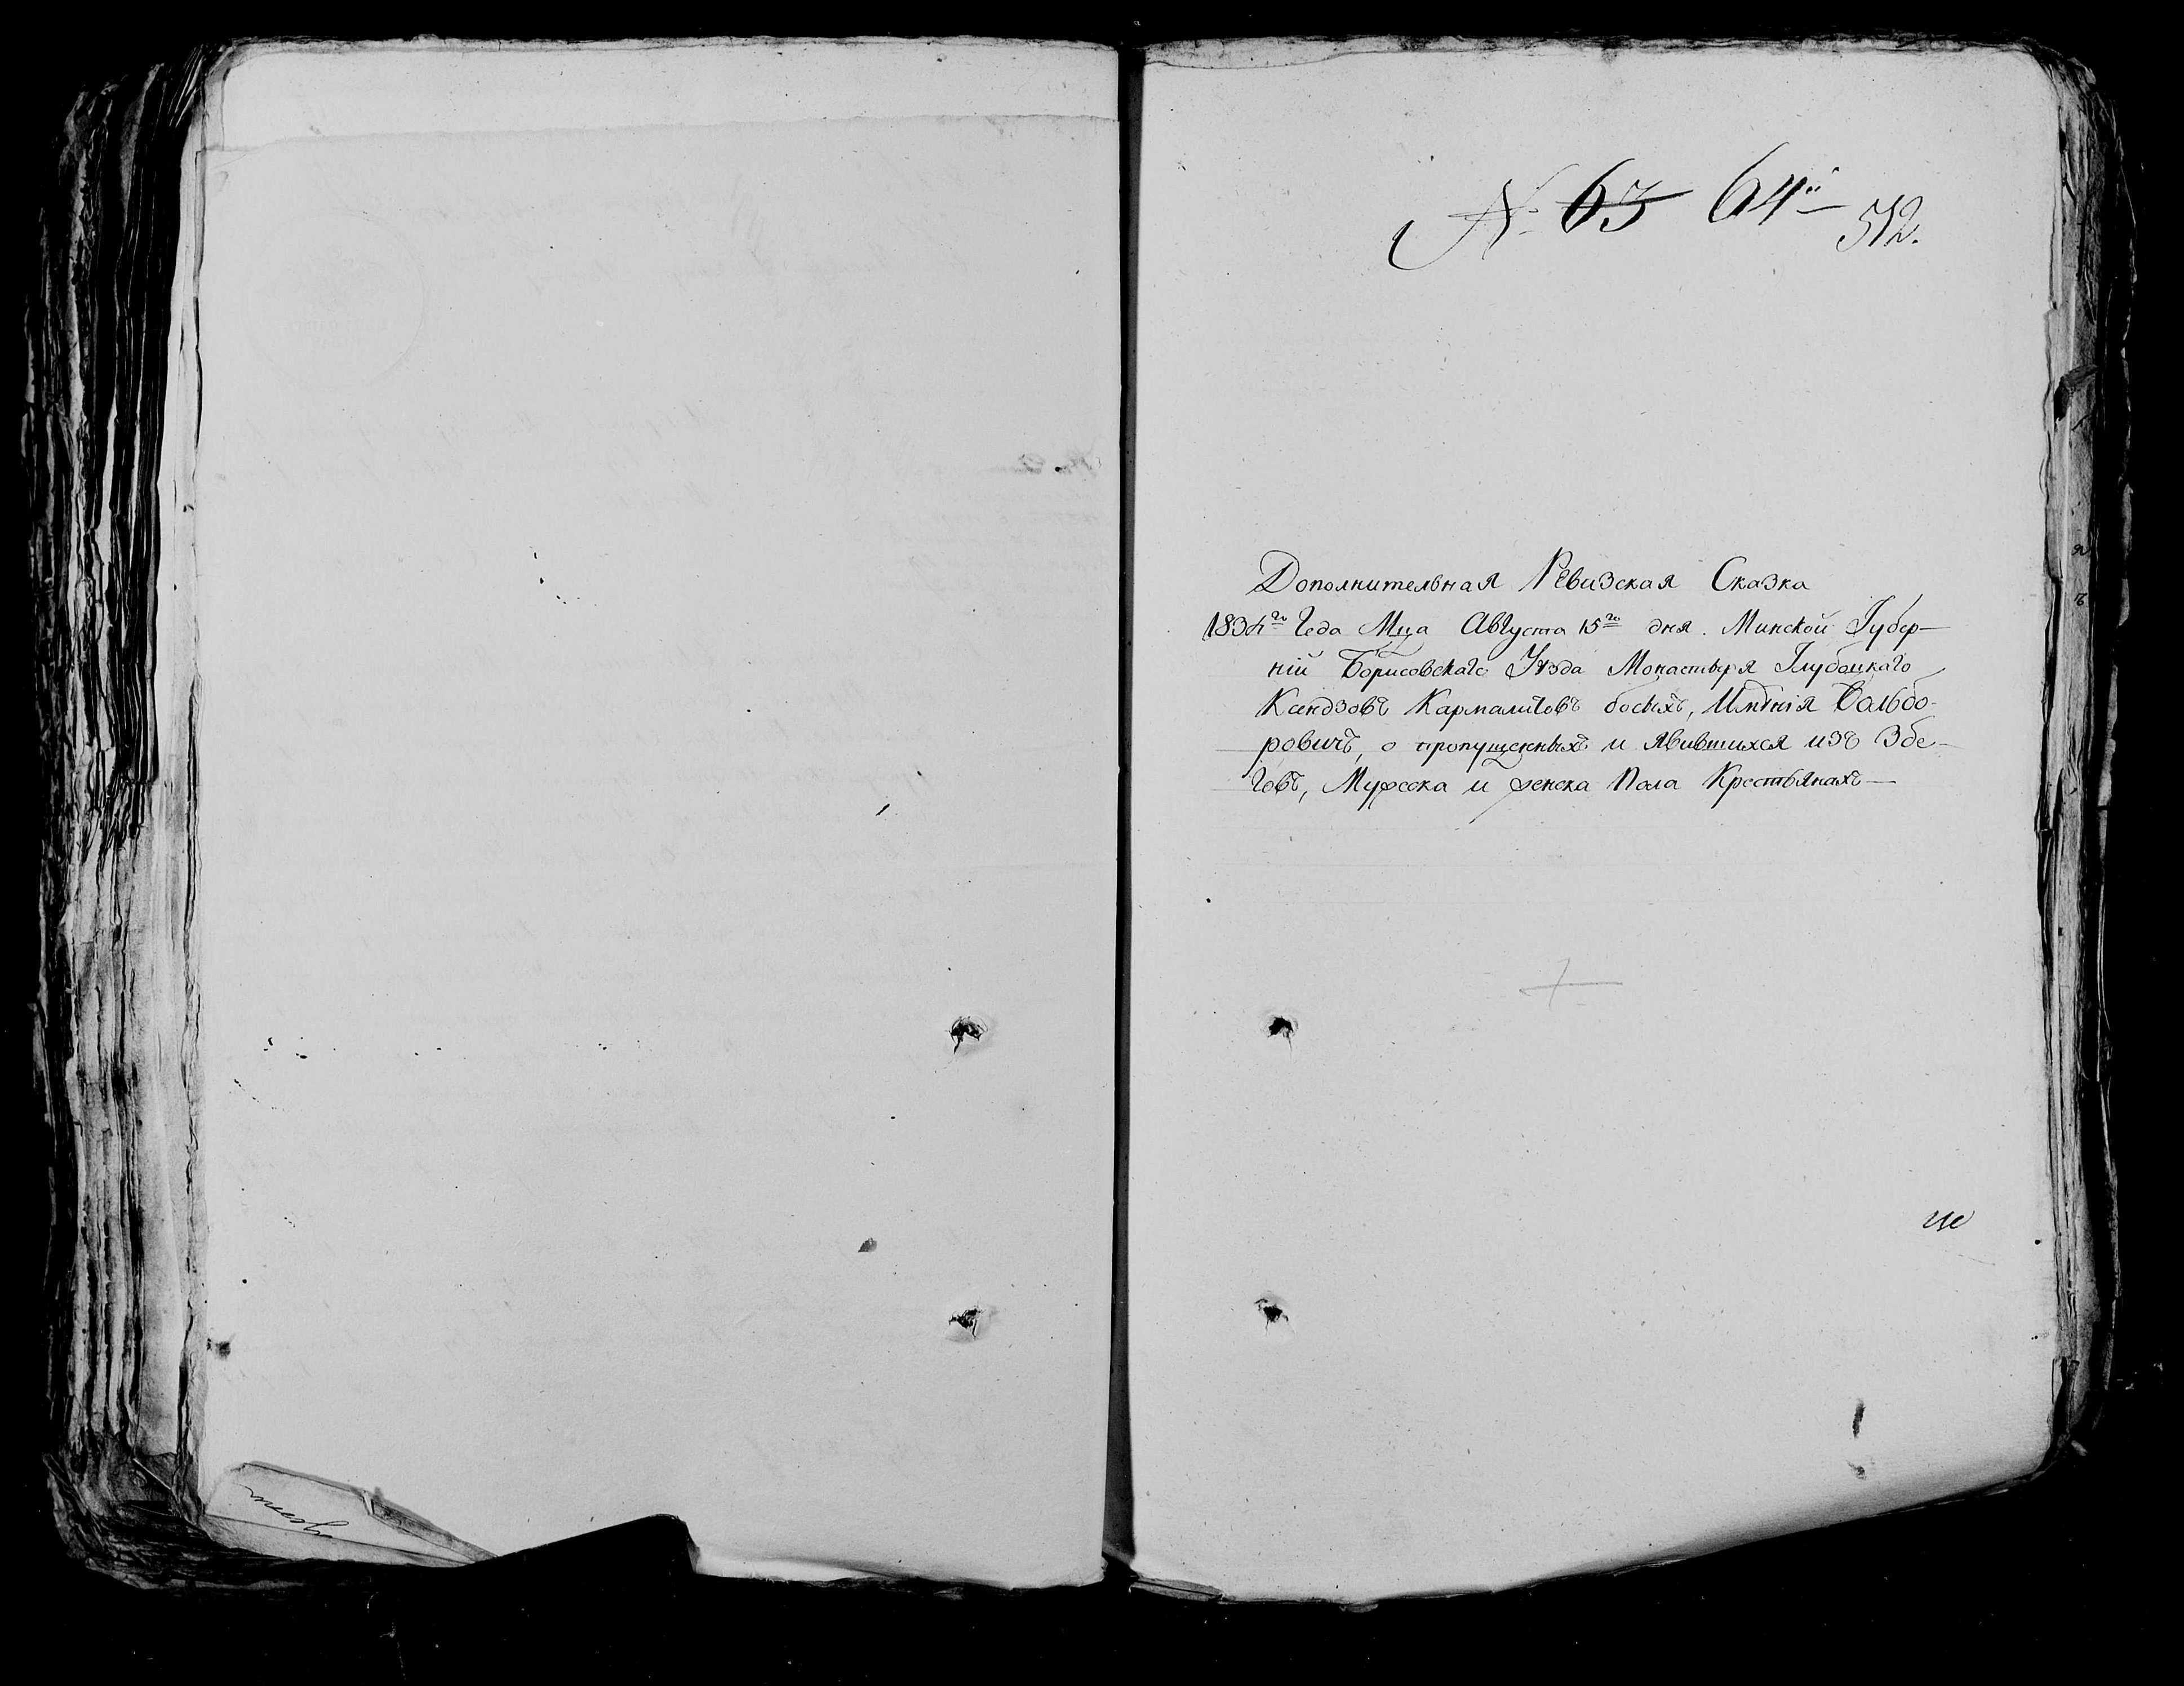 № 63 64
512.
Дополнительная Ревизская Сказка
1834го Года Мца Августа 15го дня. Минской Губер-
ніи Борисовскаго Уѣзда Монастыря Глубоцкаго
Ксендзовъ Кармалитовъ босыхъ, Имѣнія Вольбо-
ровичъ, о пропущенныхъ и явившихся изъ Збе-
говъ, Мужеска и женска Пола Крестьянахъ—